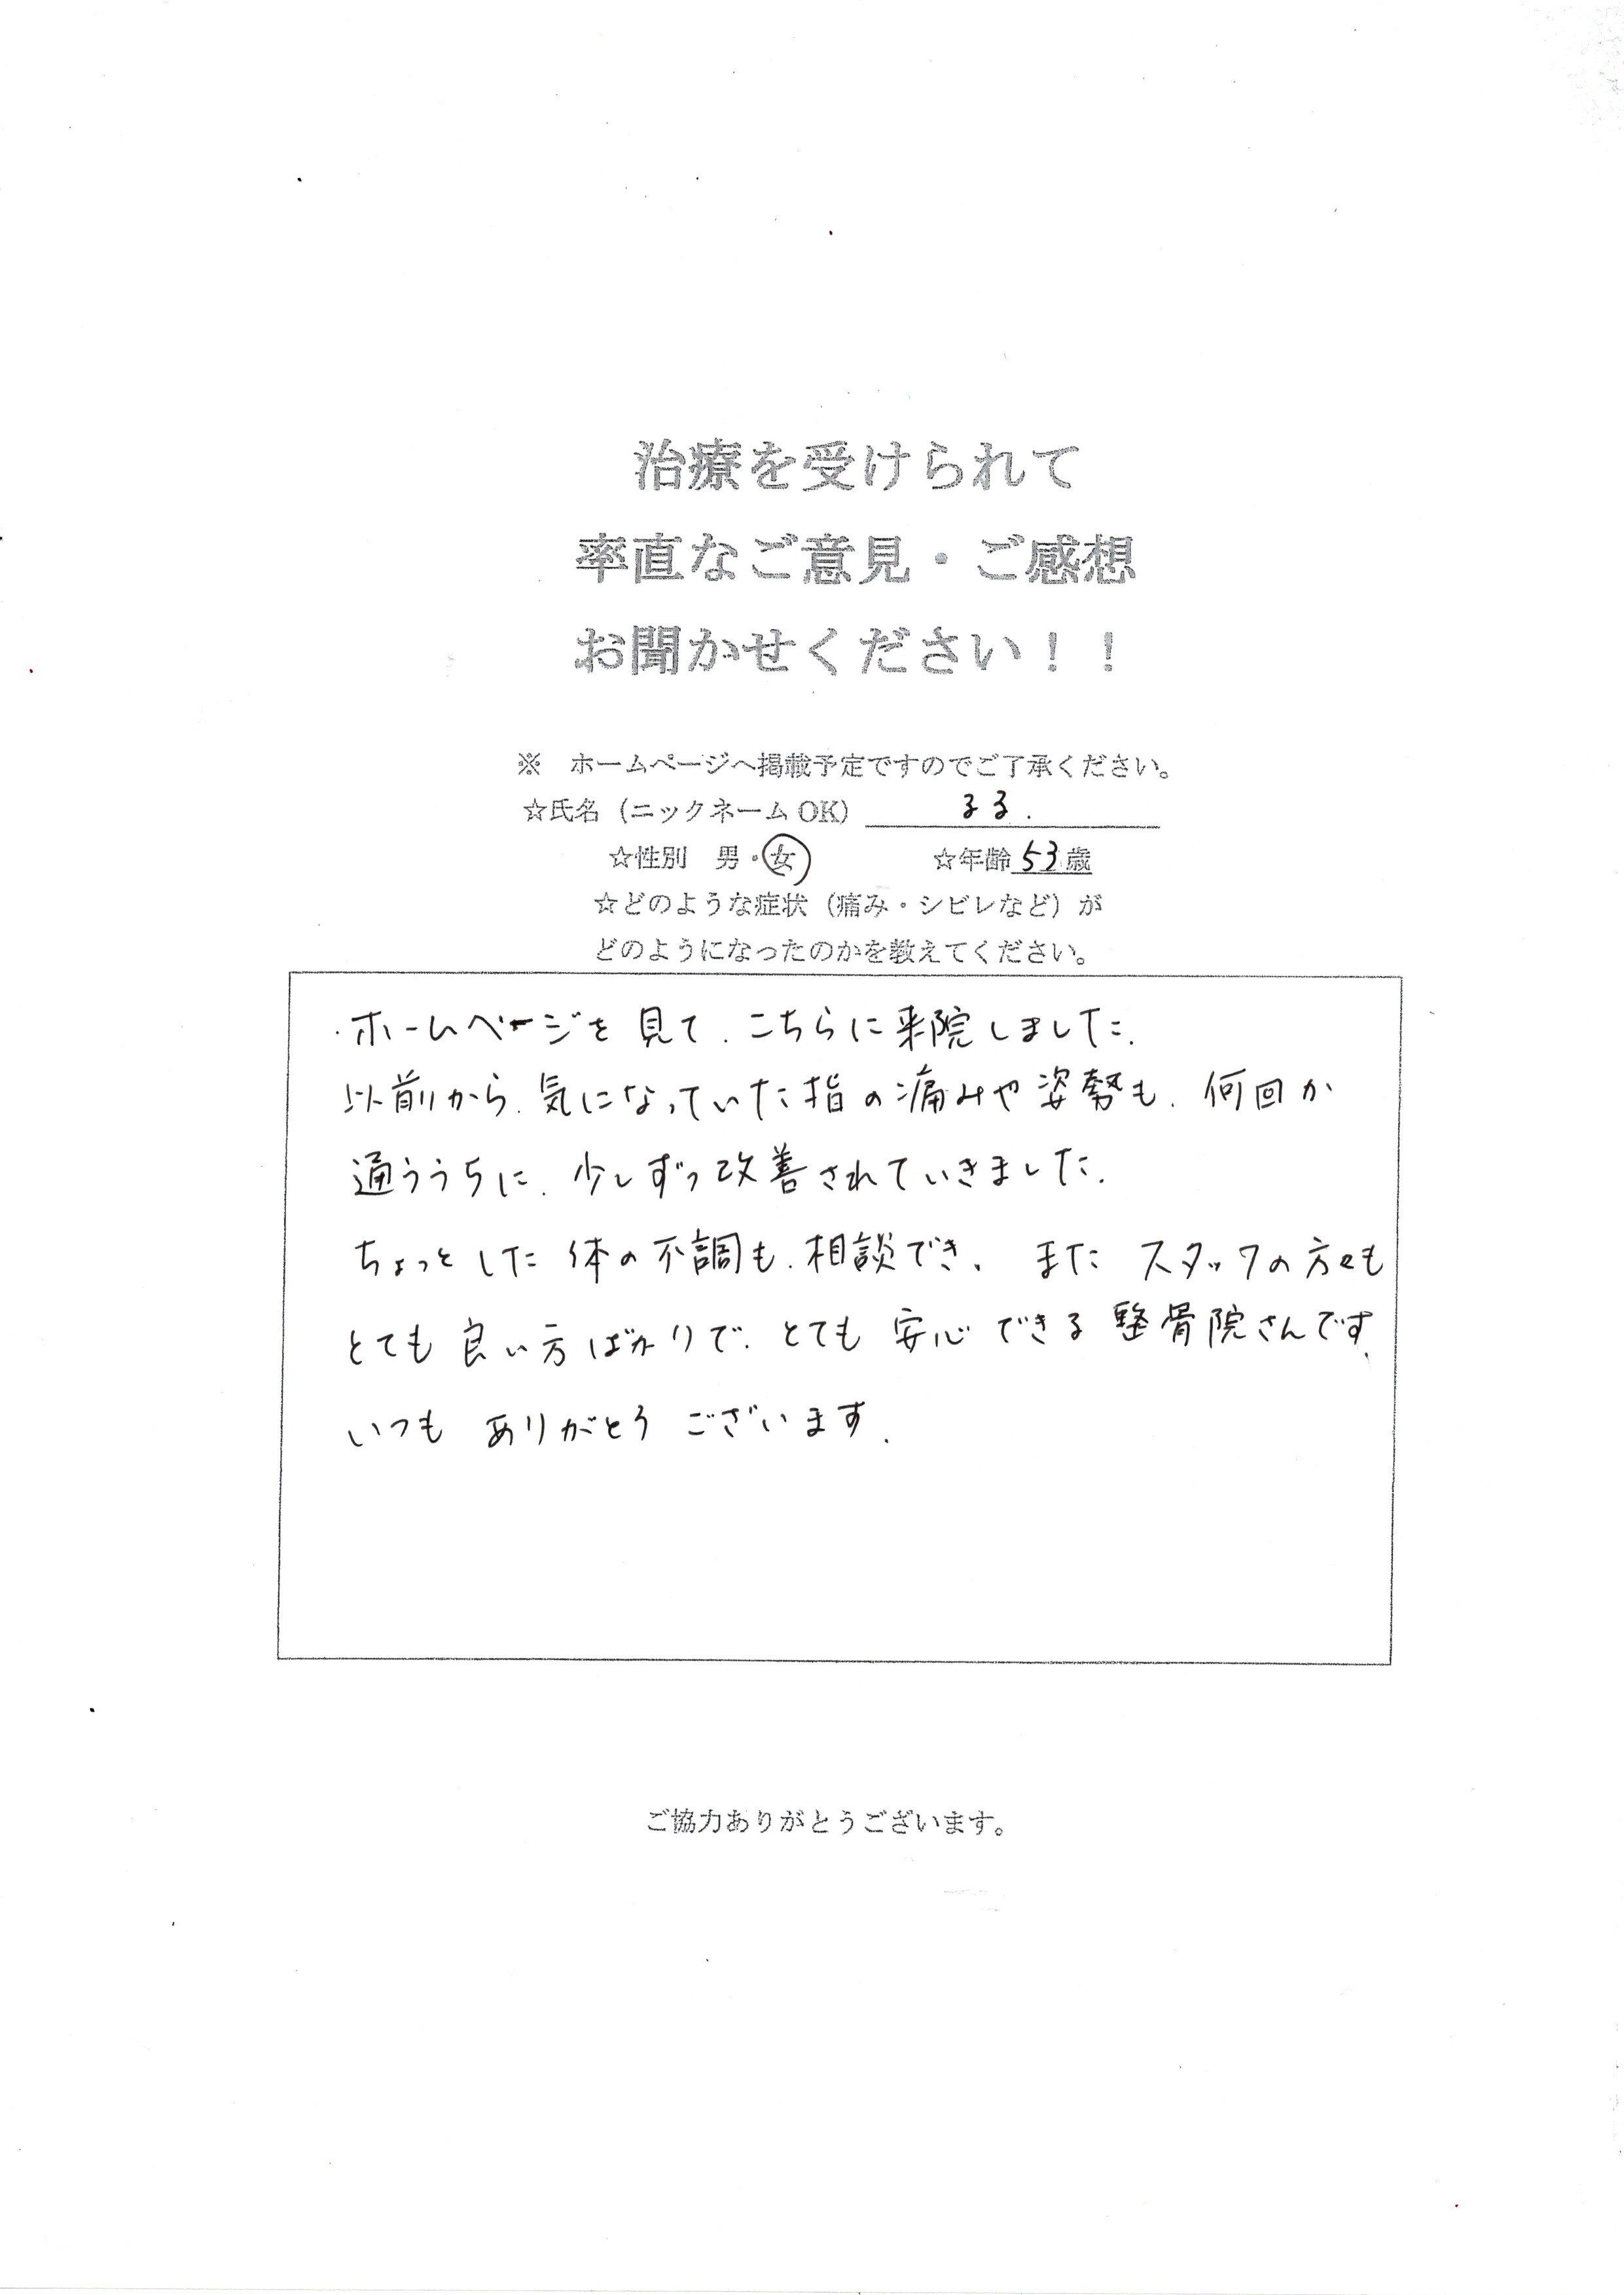 治療を受けられて
率直なご意見・ご感想
お聞かせください！！
※　ホームページへ掲載予定ですのでご了承ください。
☆氏名（ニックネームOK） るる.
☆性別　男・女　☆年齢 53 歳
☆どのような症状（痛み・シビレなど）が
どのようになったのかを教えてください。
・ホームページを見て、こちらに来院しました。
以前から、気になっていた指の痛みや姿勢も、何回か
通ううちに、少しずつ改善されていきました。
ちょっとした体の不調も、相談でき、また スタッフの方々も
とても良い方ばかりで、とても 安心できる整骨院さんです。
いつも ありがとうございます。
ご協力ありがとうございます。